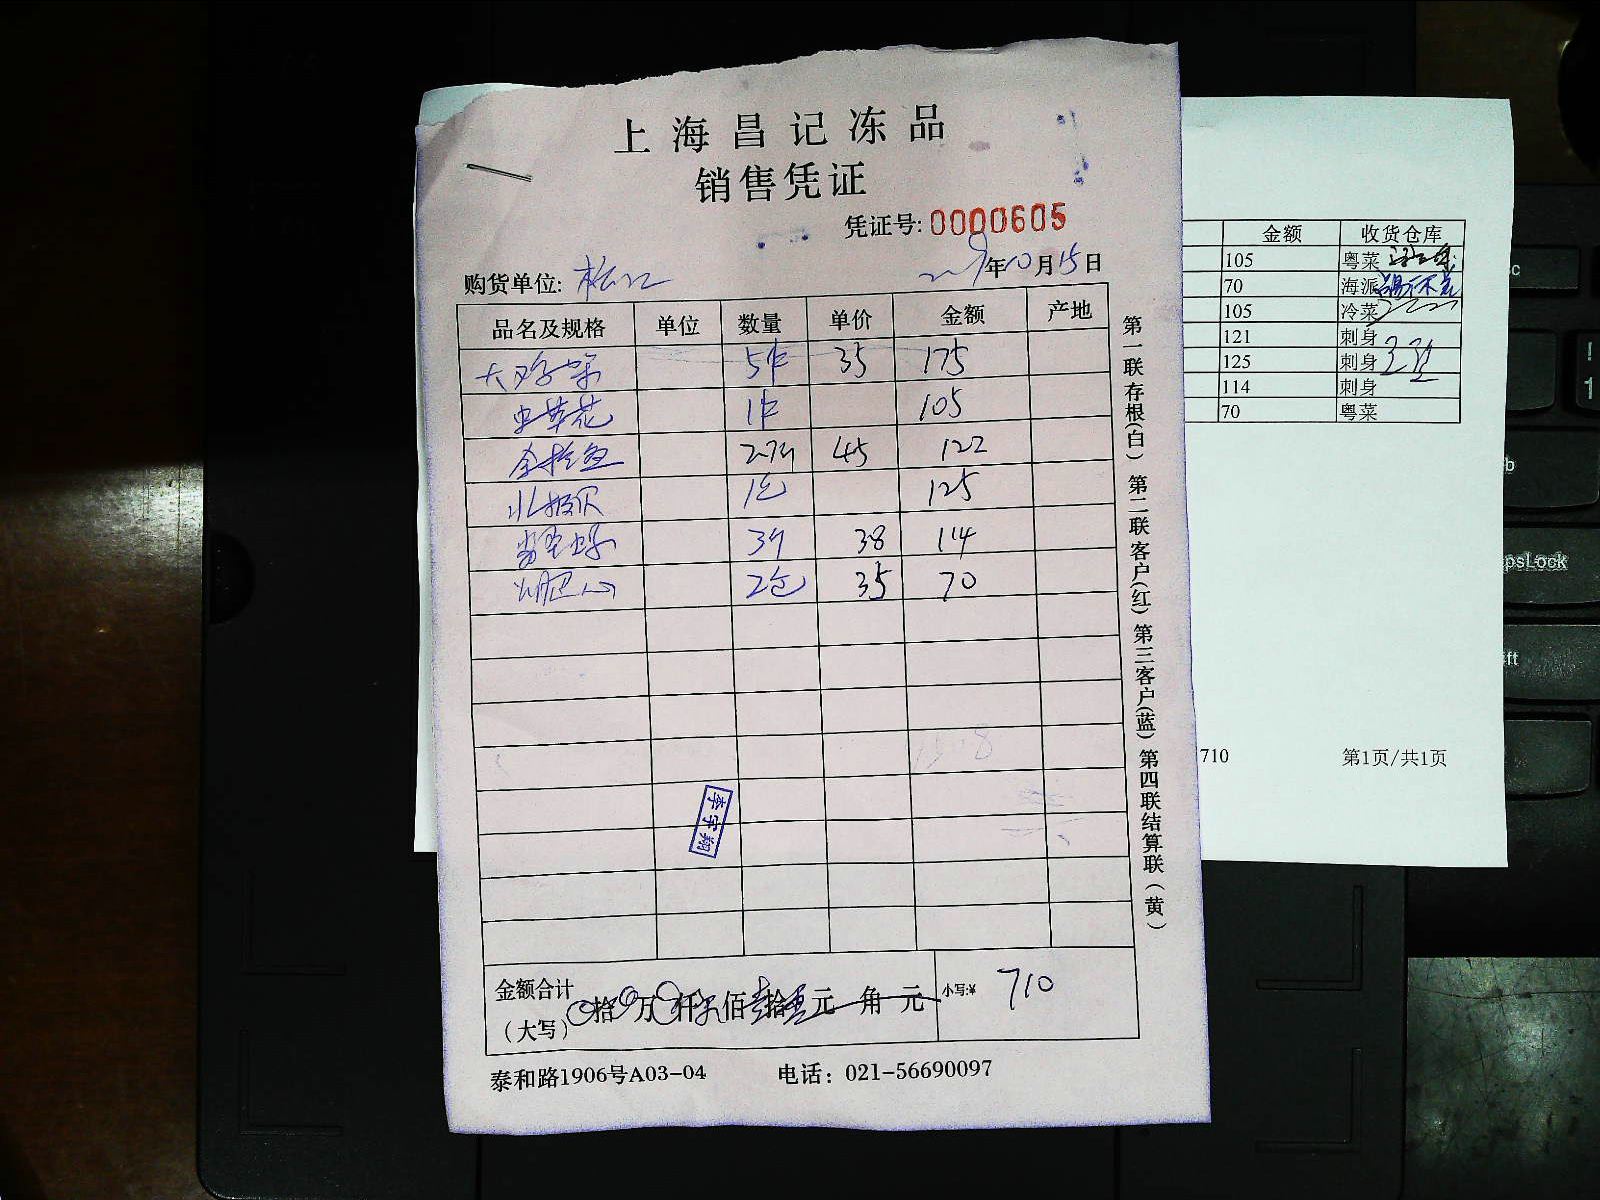 上海昌记冻品
销售凭证
凭证号: 0000605
购货单位: 松江 年10月15日
品名及规格 单位 数量 单价 金额 产地
5 35 175
虫草花 1 105
2.7 45 122
北极贝 1包 125
38 114
2包 35 70
李宇翔
金额合计
(大写)
拾 万 仟 佰 拾 元 角 元
小写:¥ 710
泰和路1906号A03-04 电话: 021-56690097
第一联存根(白) 第二联客户(红) 第三客户(蓝) 第四联结算联(黄)
金额 收货仓库
105 粤菜
70 海派
105 冷菜
121 刺身
125 刺身
114 刺身
70 粤菜
710 第1页/共1页
psLock